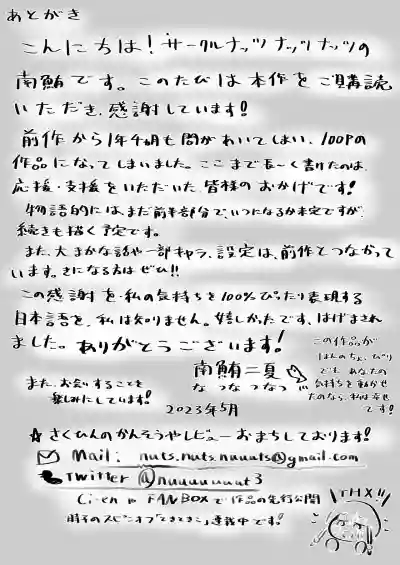 あとがき
こんにちは!サークルナッツナッツナッツの
南鮪です。このたびは本作をご購読
いただき、感謝しています!
前作から1年4ヵ月も間があいてしまい、100Pの
作品になってしまいました。ここまで長〜く書けたのは、
応援・支援をいただいた、皆様のおかげです!
物語的にはまだ前半部分で、いつになるか未定ですが、
続きも描く予定です。
また、大まかな話や一部キャラ、設定は、前作とつながって
います。きになる方はぜひ!!
この感謝を・私の気持ちを100%ぴったり表現する
日本語を、私は知りません。嬉しかったです、はげまされ
ました。ありがとうございます!
南鮪二夏
なつなつなつ
また、お会いすることを
楽しみにしています!
2023年5月
この作品が
ほんのちょっぴり
でも、あなたの
気持ちを動かせ
たのなら、私は幸せ
です!
☆さくひんのかんそうやレビューおまちしております!
Mail: nuts.nuts.nuuuts@gmail.com
Twitter @nuuuuuuut3
Ci-enやFANBOXで作品の先行公開
スピンオフ「ときどきこ」連載中です!
THX!!